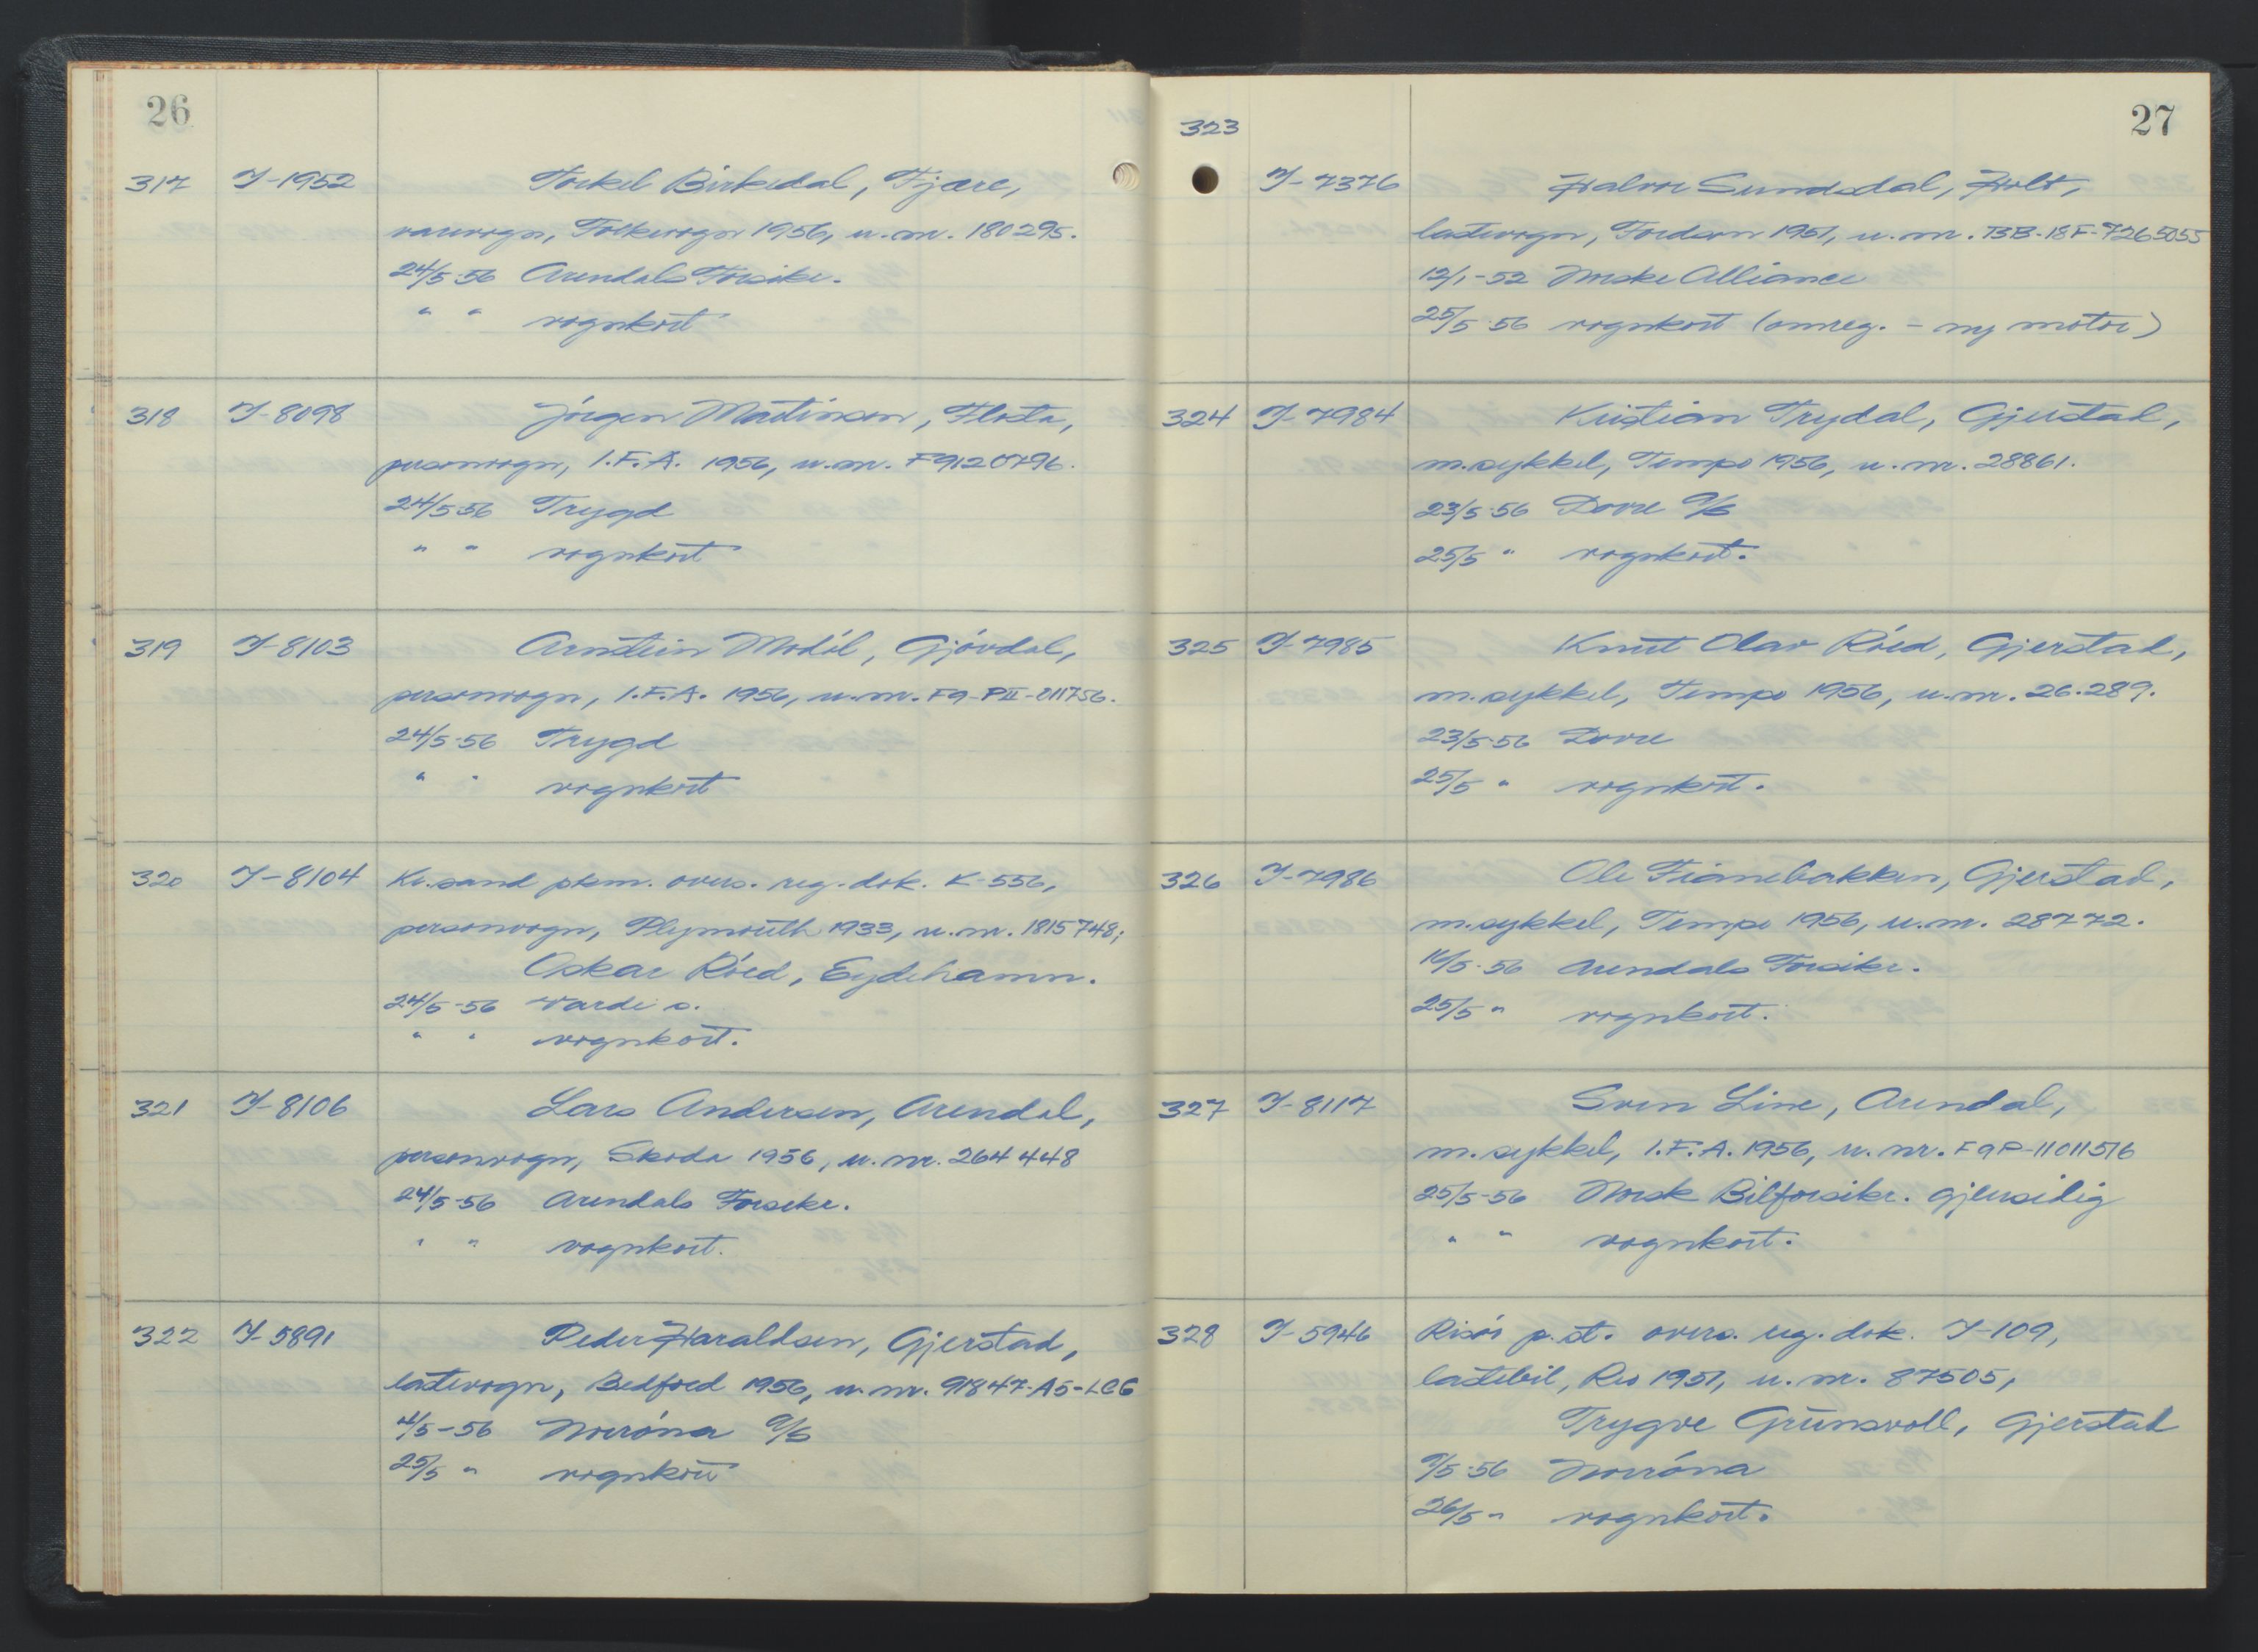 26
317 I-1952 Torkel Birkedal, Fjære,
varevogn, Folkevogn 1956, u.nr. 180295.
24/5-56 Arendals Forsikr.
" " vognkort
318 I-8098 Jørgen Martinsen, Flosta,
personvogn, I.F.A. 1956, u.nr. F9120796.
24/5-56 Trygd
" " vognkort
319 I-8103 Arnstein Modal, Gjøvdal,
personvogn, I.F.A. 1956, u.nr. F9-PII-211756.
24/5-56 Trygd
" " vognkort
320 I-8104 Kr.sand pkm. overs. reg. dok. K-556,
personvogn, Plymouth 1933, u.nr. 1815748;
Oskar Röed, Eydehamn.
24/5-56 Varde s.
" " vognkort.
321 I-8106 Lars Andersen, Arendal,
personvogn, Skoda 1956, u.nr. 264448
24/5-56 Arendals Forsikr.
" " vognkort.
322 I-5891 Peder Haraldsen, Gjerstad,
lastevogn, Bedford 1956, u.nr. 91847-A5-LCG
4/5-56 Norröna %
25/5 " vognkort
27
323
I-7376 Halvor Sundsdal, Holt,
lastevogn, Fordson 1951, u.nr. BB-18F-7265055
12/1-52 Norske Alliance
25/5-56 vognkort (omreg. - ny motor)
324 I-7984 Kristian Trydal, Gjerstad,
m.sykkel, Tempo 1956, u.nr. 28861.
23/5-56 Dovre %
25/5 " vognkort.
325 I-7985 Knut Olav Röed, Gjerstad,
m.sykkel, Tempo 1956, u.nr. 26.289.
23/5-56 Dovre
25/5 " vognkort.
326 I-7986 Ole Fianebakken, Gjerstad,
m.sykkel, Tempo 1956, u.nr. 28772.
16/5-56 Arendals Forsikr.
25/5 " vognkort.
327 I-8117 Sven Line, Arendal,
m.sykkel, I.F.A. 1956, u.nr. F9P-11011516
25/5-56 Norsk Bilforsikr. Gjensidig
" " vognkort.
328 I-5946 Risör p.st. overs. reg. dok. I-109,
lastebil, Reo 1951, u.nr. 87505,
Trygve Grunsvoll, Gjerstad
9/5-56 Norröna
26/5 " vognkort.